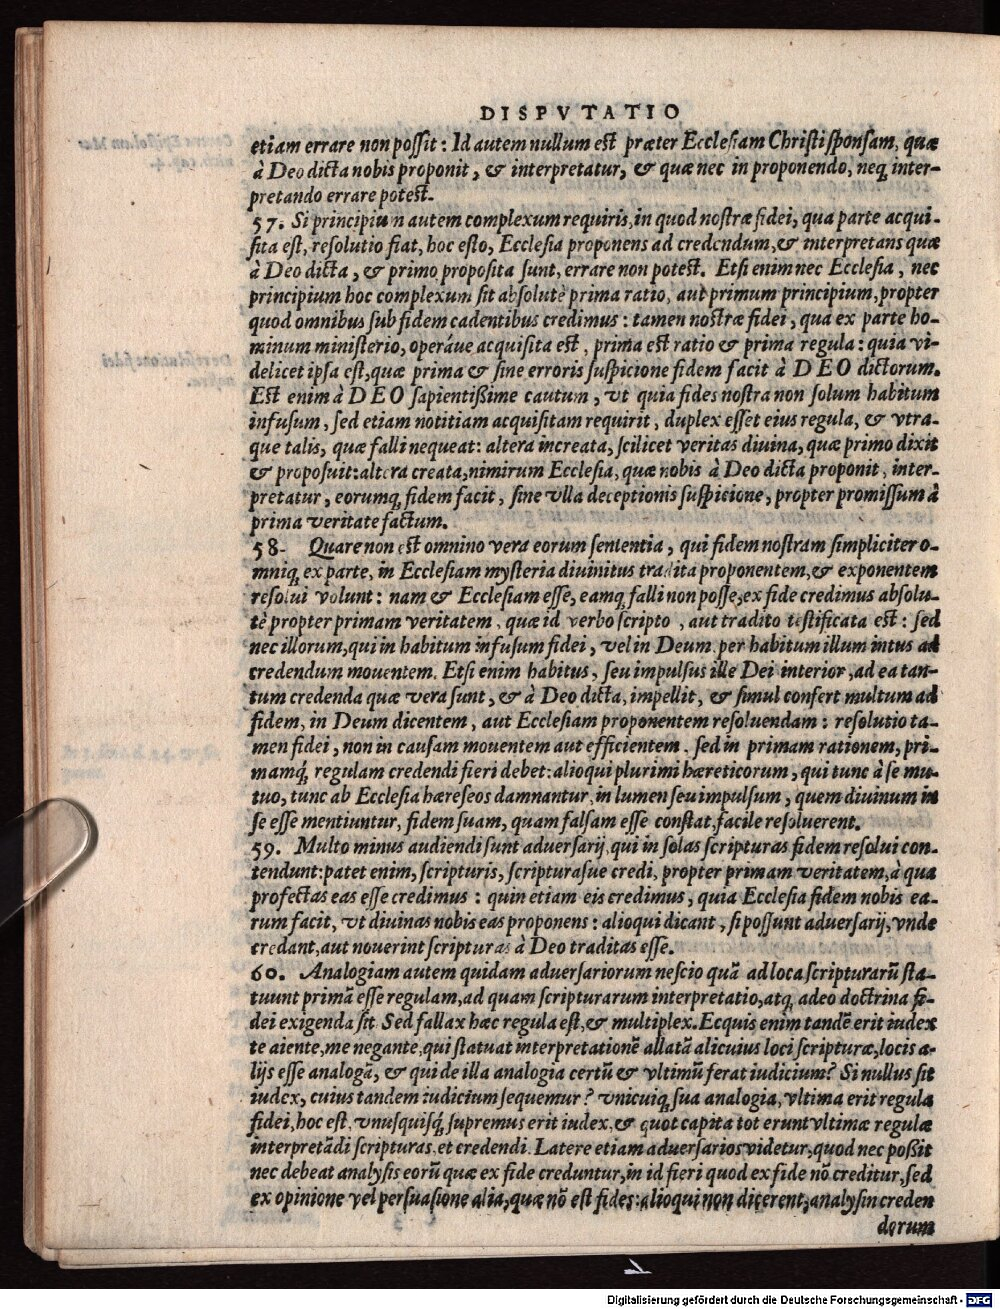 DISPVTATIO
etiam errare non poſſit : Id autem nullum eſt præter Eccleſiam Chriſti ſponſam, quæ
à Deo dicta nobis proponit, & interpretatur, & quæ nec in proponendo, neq; inter-
pretando errare poteſt.
57. Si principium autem complexum requiris, in quod noſtræ fidei, qua parte acqui-
ſita eſt, reſolutio fiat, hoc eſto, Eccleſia proponens ad credendum, & interpretans quæ
à Deo dicta, & primo propoſita ſunt, errare non poteſt. Etſi enim nec Eccleſia, nec
principium hoc complexum ſit abſolutè prima ratio, aut primum principium, propter
quod omnibus ſub fidem cadentibus credimus : tamen noſtræ fidei, qua ex parte ho-
minum miniſterio, operáue acquiſita eſt, prima eſt ratio & prima regula : quia vi-
delicet ipſa eſt, quæ prima & ſine erroris ſuſpicione fidem facit à DEO dictorum.
Eſt enim à DEO ſapientißime cautum, vt quia fides noſtra non ſolum habitum
infuſum, ſed etiam notitiam acquiſitam requirit, duplex eſſet eius regula, & vtra-
que talis, quæ falli nequeat: altera increata, ſcilicet veritas diuina, quæ primo dixit
& propoſuit: altera creata, nimirum Eccleſia, quæ nobis à Deo dicta proponit, inter-
pretatur, eorumq; fidem facit, ſine vlla deceptionis ſuſpicione, propter promiſſum à
prima veritate factum.
58. Quare non eſt omnino vera eorum ſententia, qui fidem noſtram ſimpliciter o-
mniq; ex parte, in Eccleſiam myſteria diuinitus tradita proponentem, & exponentem
reſolui volunt : nam & Eccleſiam eſſe, eamq; falli non poſſe, ex fide credimus abſolu-
tè propter primam veritatem, quæ id verbo ſcripto, aut tradito teſtificata eſt : ſed
nec illorum, qui in habitum infuſum fidei, vel in Deum per habitum illum intus ad
credendum mouentem. Etſi enim habitus, ſeu impulſus ille Dei interior, ad ea tan-
tum credenda quæ vera ſunt, & à Deo dicta, impellit, & ſimul confert multum ad
fidem, in Deum dicentem, aut Eccleſiam proponentem reſoluendam : reſolutio ta-
men fidei, non in cauſam mouentem aut efficientem, ſed in primam rationem, pri-
mamq́; regulam credendi fieri debet: alioqui plurimi hæreticorum, qui tunc à ſe mu-
tuo, tunc ab Eccleſia hæreſeos damnantur, in lumen ſeu impulſum, quem diuinum in
ſe eſſe mentiuntur, fidem ſuam, quam falſam eſſe conſtat, facile reſoluerent.
59. Multo minus audiendi ſunt aduerſarij, qui in ſolas ſcripturas fidem reſolui con-
tendunt: patet enim, ſcripturis, ſcripturaſue credi, propter primam veritatem, à qua
profectas eas eſſe credimus : quin etiam eis credimus, quia Eccleſia fidem nobis ea-
rum facit, vt diuinas nobis eas proponens : alioqui dicant, ſi poſſunt aduerſarij, vnde
credant, aut nouerint ſcripturas à Deo traditas eſſe.
60. Analogiam autem quidam aduerſariorum neſcio quã ad loca ſcripturarũ ſta-
tuunt primã eſſe regulam, ad quam ſcripturarum interpretatio, atq; adeo doctrina fi-
dei exigenda ſit. Sed fallax hæc regula eſt, & multiplex. Ecquis enim tandẽ erit iudex
te aiente, me negante, qui ſtatuat interpretationẽ allatã alicuius loci ſcripturæ, locis a-
lijs eſſe analogã, & qui de illa analogia certũ & vltimũ ferat iudicium? Si nullus ſit
iudex, cuius tandem iudicium ſequemur? vnicuiq; ſua analogia, vltima erit regula
fidei, hoc eſt, vnuſquiſq́; ſupremus erit iudex, & quot capita tot erunt vltimæ regulæ
interpretãdi ſcripturas, et credendi. Latere etiam aduerſarios videtur, quod nec poßit
nec debeat analyſis eorũ quæ ex fide creduntur, in id fieri quod ex fide nõ creditur, ſed
ex opinione vel perſuaſione alia, quæ nõ eſt fides: alioqui non dicerent, analyſin creden
dorum
Digitalisierung gefördert durch die Deutsche Forschungsgemeinschaft - DFG